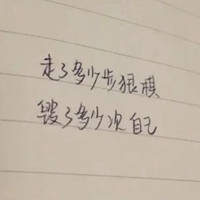 走了多少步狠棋
毁了多少次自己